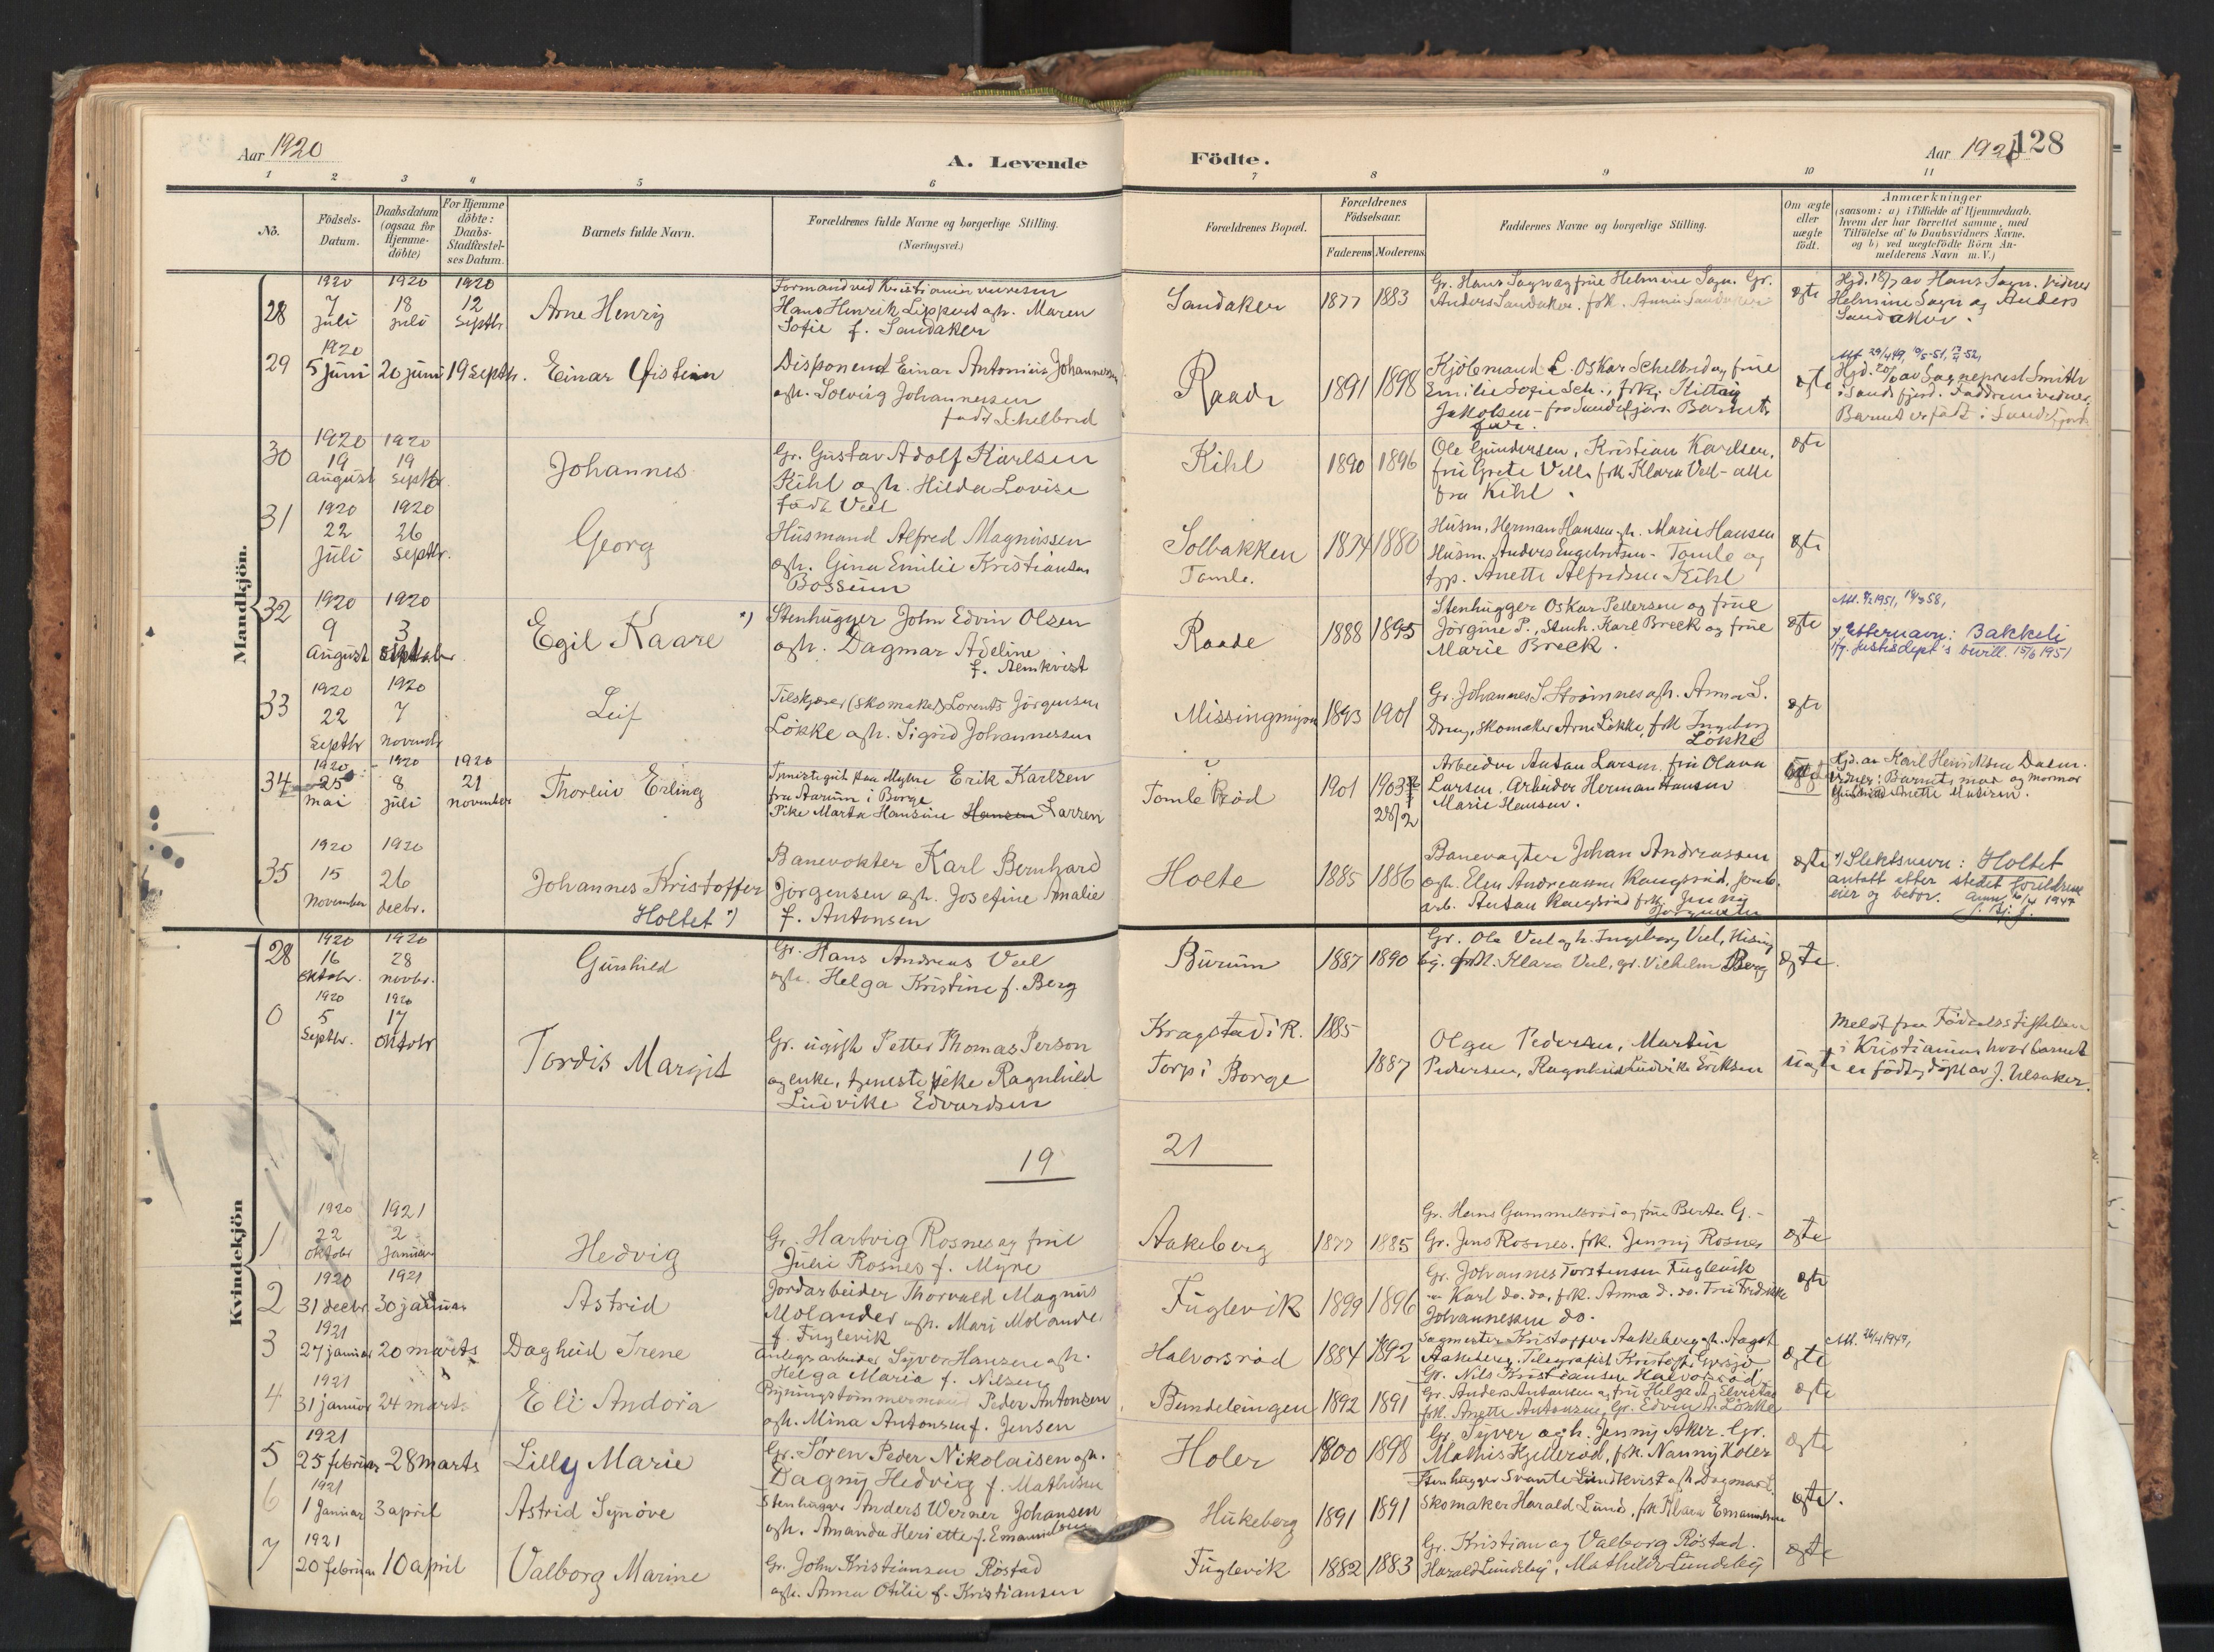 Aar 1920
A. Levende
Födte.
Aar 1920
128
1 2 3 4 5 6 7 8 9 10 11
No.
Födsels-
Datum.
Daabsdatum
(ogsaa for
Hjemme-
döbte)
For Hjemme
döbte:
Daabs-
Stadfæstel-
ses Datum.
Barnets fulde Navn.
Forældrenes fulde Navne og borgerlige Stilling.
(Næringsvei.)
Forældrenes Bopæl.
Forældrenes
Födselsaar.
Faderens
Moderens
Faddernes Navne og borgerlige Stilling.
Om ægte
eller
uægte
födt.
Anmærkninger
(saasom: a) i Tilfælde af Hjemmedaab.
hvem der har forrettet samme, med
Tilföielse af to Daabsvidners Navne.
og b) ved uægtefödte Börn An-
melderens Navn m. V.)
Mandkjön.
28
1920
7
juli
1920
18
juli
1920
12
Septbr
Arne Henry
Formand ved Kristiania
Hans Henrik Lippert og h. Maren
Sofie f. Sandaker
Sandaker
1877
1883
Gr. Hans Sagn og frue Helmine Sagn. Gr.
Anders Sandaker. frk. Anna Sandaker
egte
Hjd. 18/7 av Hans Sagn. Vidner
Helmine Sagn og Anders
Sandaker.
29
1920
5 juni
20 juni
19 Septbr.
Einar Øistein
Disponent Einar Antonius Johannessen
og h. Solveig Johannessen
født Schelbred
Raade
1891
1898
Kjøbmand L. Oskar Schelbred og frue
Emilie Sofie Sch., frk. Kittag
Jakobsen - fra Sandefjord. Barnets
far.
egte
Hjd. 20/6 av Sogneprest Smith
i Sandefjord. Fadderne vidner.
Barnet er født i Sandefjord
30
1920
19
August
1920
19
Septbr.
Johannes
Gr. Gustav Adolf Karlsen
Kihl og h. Hilda Lovise
født Veel
Kihl
1890
1896
Ole Gundersen, Kristian Karlsen,
fru Grete Vell. frk Klara Veel - alle
fra Kihl.
egte
31
1920
22
Juli
1920
26
Septbr.
Georg
Husmand Alfred Magnussen
og h. Gina Emilie Kristiansen
Bossum
Solbakken
Tomle.
1874
1880
Husm. Herman Hansen og h. Marie Hansen
Husm. Anders Engebretsen - Tomle og
tjp. Anette Alfredsen - Kihl
egte
32
1920
9
August
1920
3
Oktober
Egil Kaare *)
Stenhugger John Edvin Olsen
og h. Dagmar Adeline
f. Almkvist
Raade
1888
1895
Stenhugger Oskar Pettersen og frue
Jørgine P., Stenh. Karl Breek og frue
Marie Breek.
egte
*) Etternavn: Bakkeli
ifg. Justisdept's bevill. 15/6 1951
33
1920
22
Septbr
1920
7
Novembr
Leif
Tilskjærer (Skomaker) Lorents Jørgensen
Løkke og h. Sigrid Johannessen
Missingmyren
1893
1901
Gr. Johannes S. Strømnes og h. Anna S.
Dreng, Skomaker Arne Løkke, frk Ingeborg
Løkke
egte
34
1920
25
mai
1920
8
juli
1920
21
november
Thorleiv Erling
Tjenestegut paa Myhre Erik Karlsen
fra Aarum i Borge
Pike Marta Hansine Hansen Larsen
Tomle Rød
1901
1903
28/2
Arbeider Anton Larsen, fru Olava
Larsen, Arbeider Herman Hansen
Marie Hansen.
Hjd. av Karl Henriksen Dalen.
Vidner: Barnets mor og mormor
35
1920
15
November
1920
26
decbr.
Johannes Kristoffer
Holtet *)
Banevokter Karl Bernhard
Jørgensen og h. Josefine Amalie
f. Antonsen
Holte
1885
1886
Banevogter Johan Andreassen
og h. Elen Andreassen Kaugsrød, Jernb.
arb. Anton Kaugsrød frk. Jenny
Jørgensen
egte
*) Slektsnavn: Holtet
antatt etter stedet foreldrene
eier og bebor. 16/4 1947
28
1920
16
Oktobr.
1920
28
novbr.
Gunhild
Gr. Hans Andreas Veel
og h. Helga Kristine f. Berg
Burum
1887
1890
Gr. Ole Veel og h. Ingeborg Veel, Hising
frk. Klara Veel, gr. Vilhelm Berg
egte.
0
1920
5
Septbr.
1920
17
Oktobr
Tordis Margit
Gr. ugift Petter Thomas Person
og enke, tjenestepike Ragnhild
Ludvike Edvardsen
Kragstad i R.
Torp i Borge
1885
1887
Olga Pedersen, Martin
Pedersen, Ragnhild Ludvike Eriksen
uægte
Meldt fra Fødselsstiftelsen
i Kristiania hvor barnet
er født og døpt av J. Ulsaker.
19
21
Kvindekjön
1
1920
22
Oktobr
1921
2
Januar
Hedvig
Gr. Hartvig Rosnes og frue
Julie Rosnes f. Myre
Aakeberg
1877
1885
Gr. Hans Gammelsrød og frue Berta G. -
Gr. Jens Rosnes. frk. Jenny Rosnes
egte
2
1920
31 decbr.
1921
30 januar
Astrid
Jordarbeider Thorvald Magnus
Molander og h. Mari Molander
f. Fuglevik
Fuglevik
1899
1896
Gr. Johannes Torstensen Fuglevik
" Karl do. do, frk. Anna d. do. Fru Fredrikke
Johannessen do.
egte
3
1921
27 januar
20 marts
Daghild Irene
Anlegsarbeider Syver Hansen og h.
Helga Maria f. Nilsen
Halvorsrød
1884
1892
Sagmester Kristoffer Aakeberg og h. Aagot
Aakeberg, Telegrafist Kristoff. Gresjø
Gr. Nils Kristiansen Halvorsrød
egte
Att. 26/4 1947,
4
1921
31 januar
24 marts
Eli Andora
Bygningstømmermand Peder Antonsen
og h. Mina Antonsen f. Jensen
Bundeleingen
1892
1891
Gr. Anders Antonsen og fru Helga A. Elvestad
frk. Anette Antonsen, Gr. Edvin A. Løkke
egte
5
1921
25 februar
28 marts
Lilly Marie
Gr. Søren Peder Nikolaisen og h.
Dagny Hedvig f. Mathisen
Holer
1900
1898
Gr. Syver og h. Jenny Aker. Gr.
Mathis Kjellerød, frk. Nanny Holer
egte
6
1921
1 Januar
3 april
Astrid Synøve
Stenhugger Anders Werner Johansen
og h. Amanda Henriette f. Emanuelsen
Hukeberg
1891
1891
Stenhugger Svante Lundkvist og h. Dagmar L.
Skomaker Harald Lund, frk Klara Emanuelsen
egte.
7
1921
20 februar
10 april
Valborg Marine
Gr. John Kristiansen Røstad
og h. Anna Otilie f. Kristiansen
Fuglevik
1882
1883
Gr. Kristian og Valborg Røstad.
Harald Lundeby, Mathilde Lundeby
egte